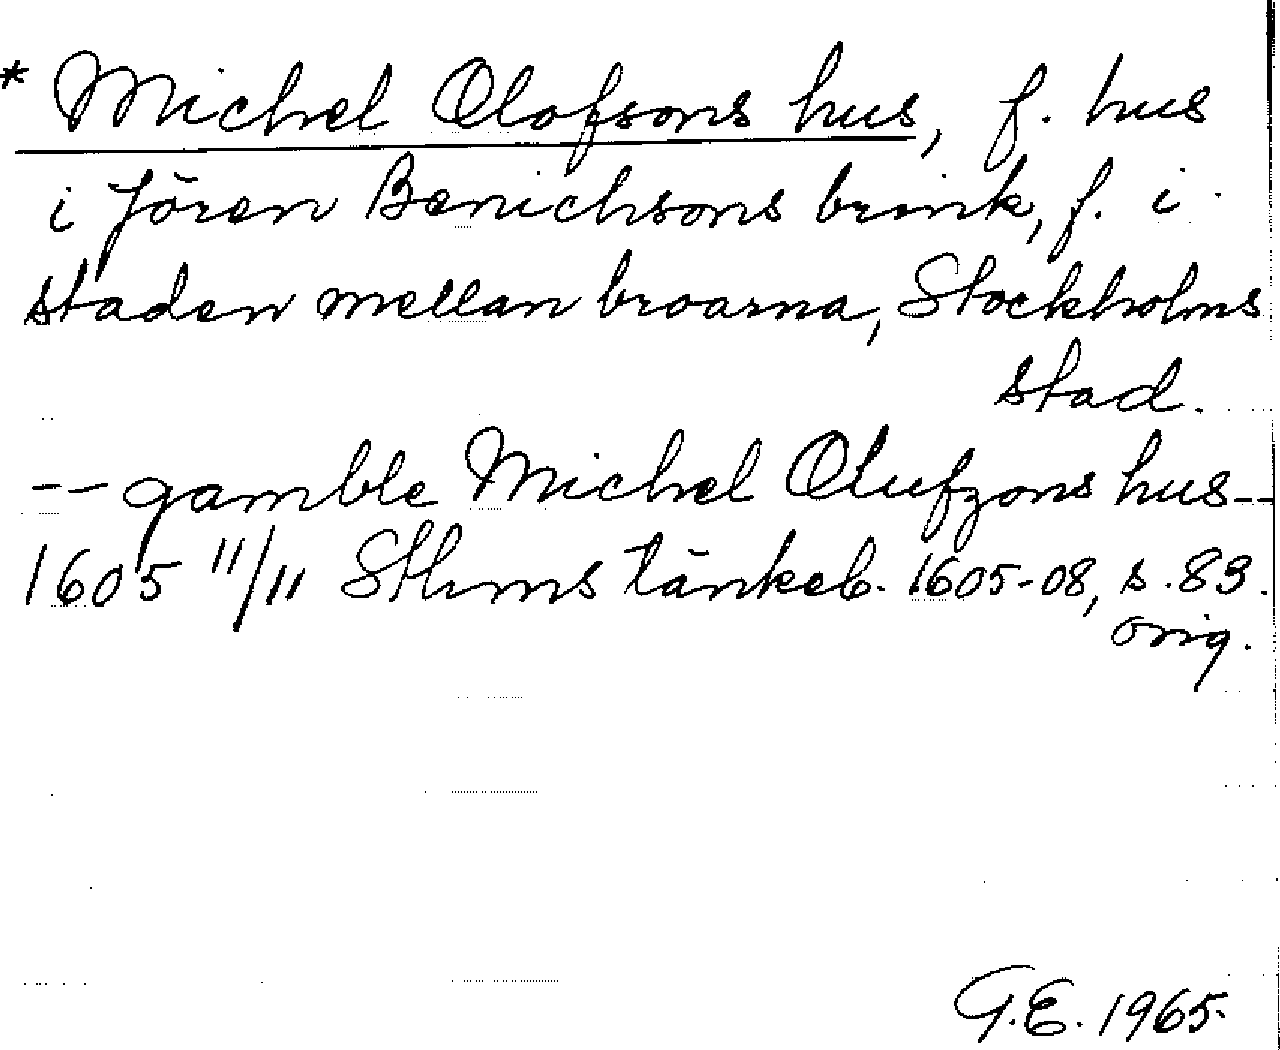 * Michel Olofsons hus, f. hus
i Jören Benichsons brink, f. i
staden mellan broarna, Stockholms
stad.
-- gamble Michel Olufzons hus --
1605 11/11 Sthms tänkeb. 1605-08, s. 83.
orig.
G.E. 1965.